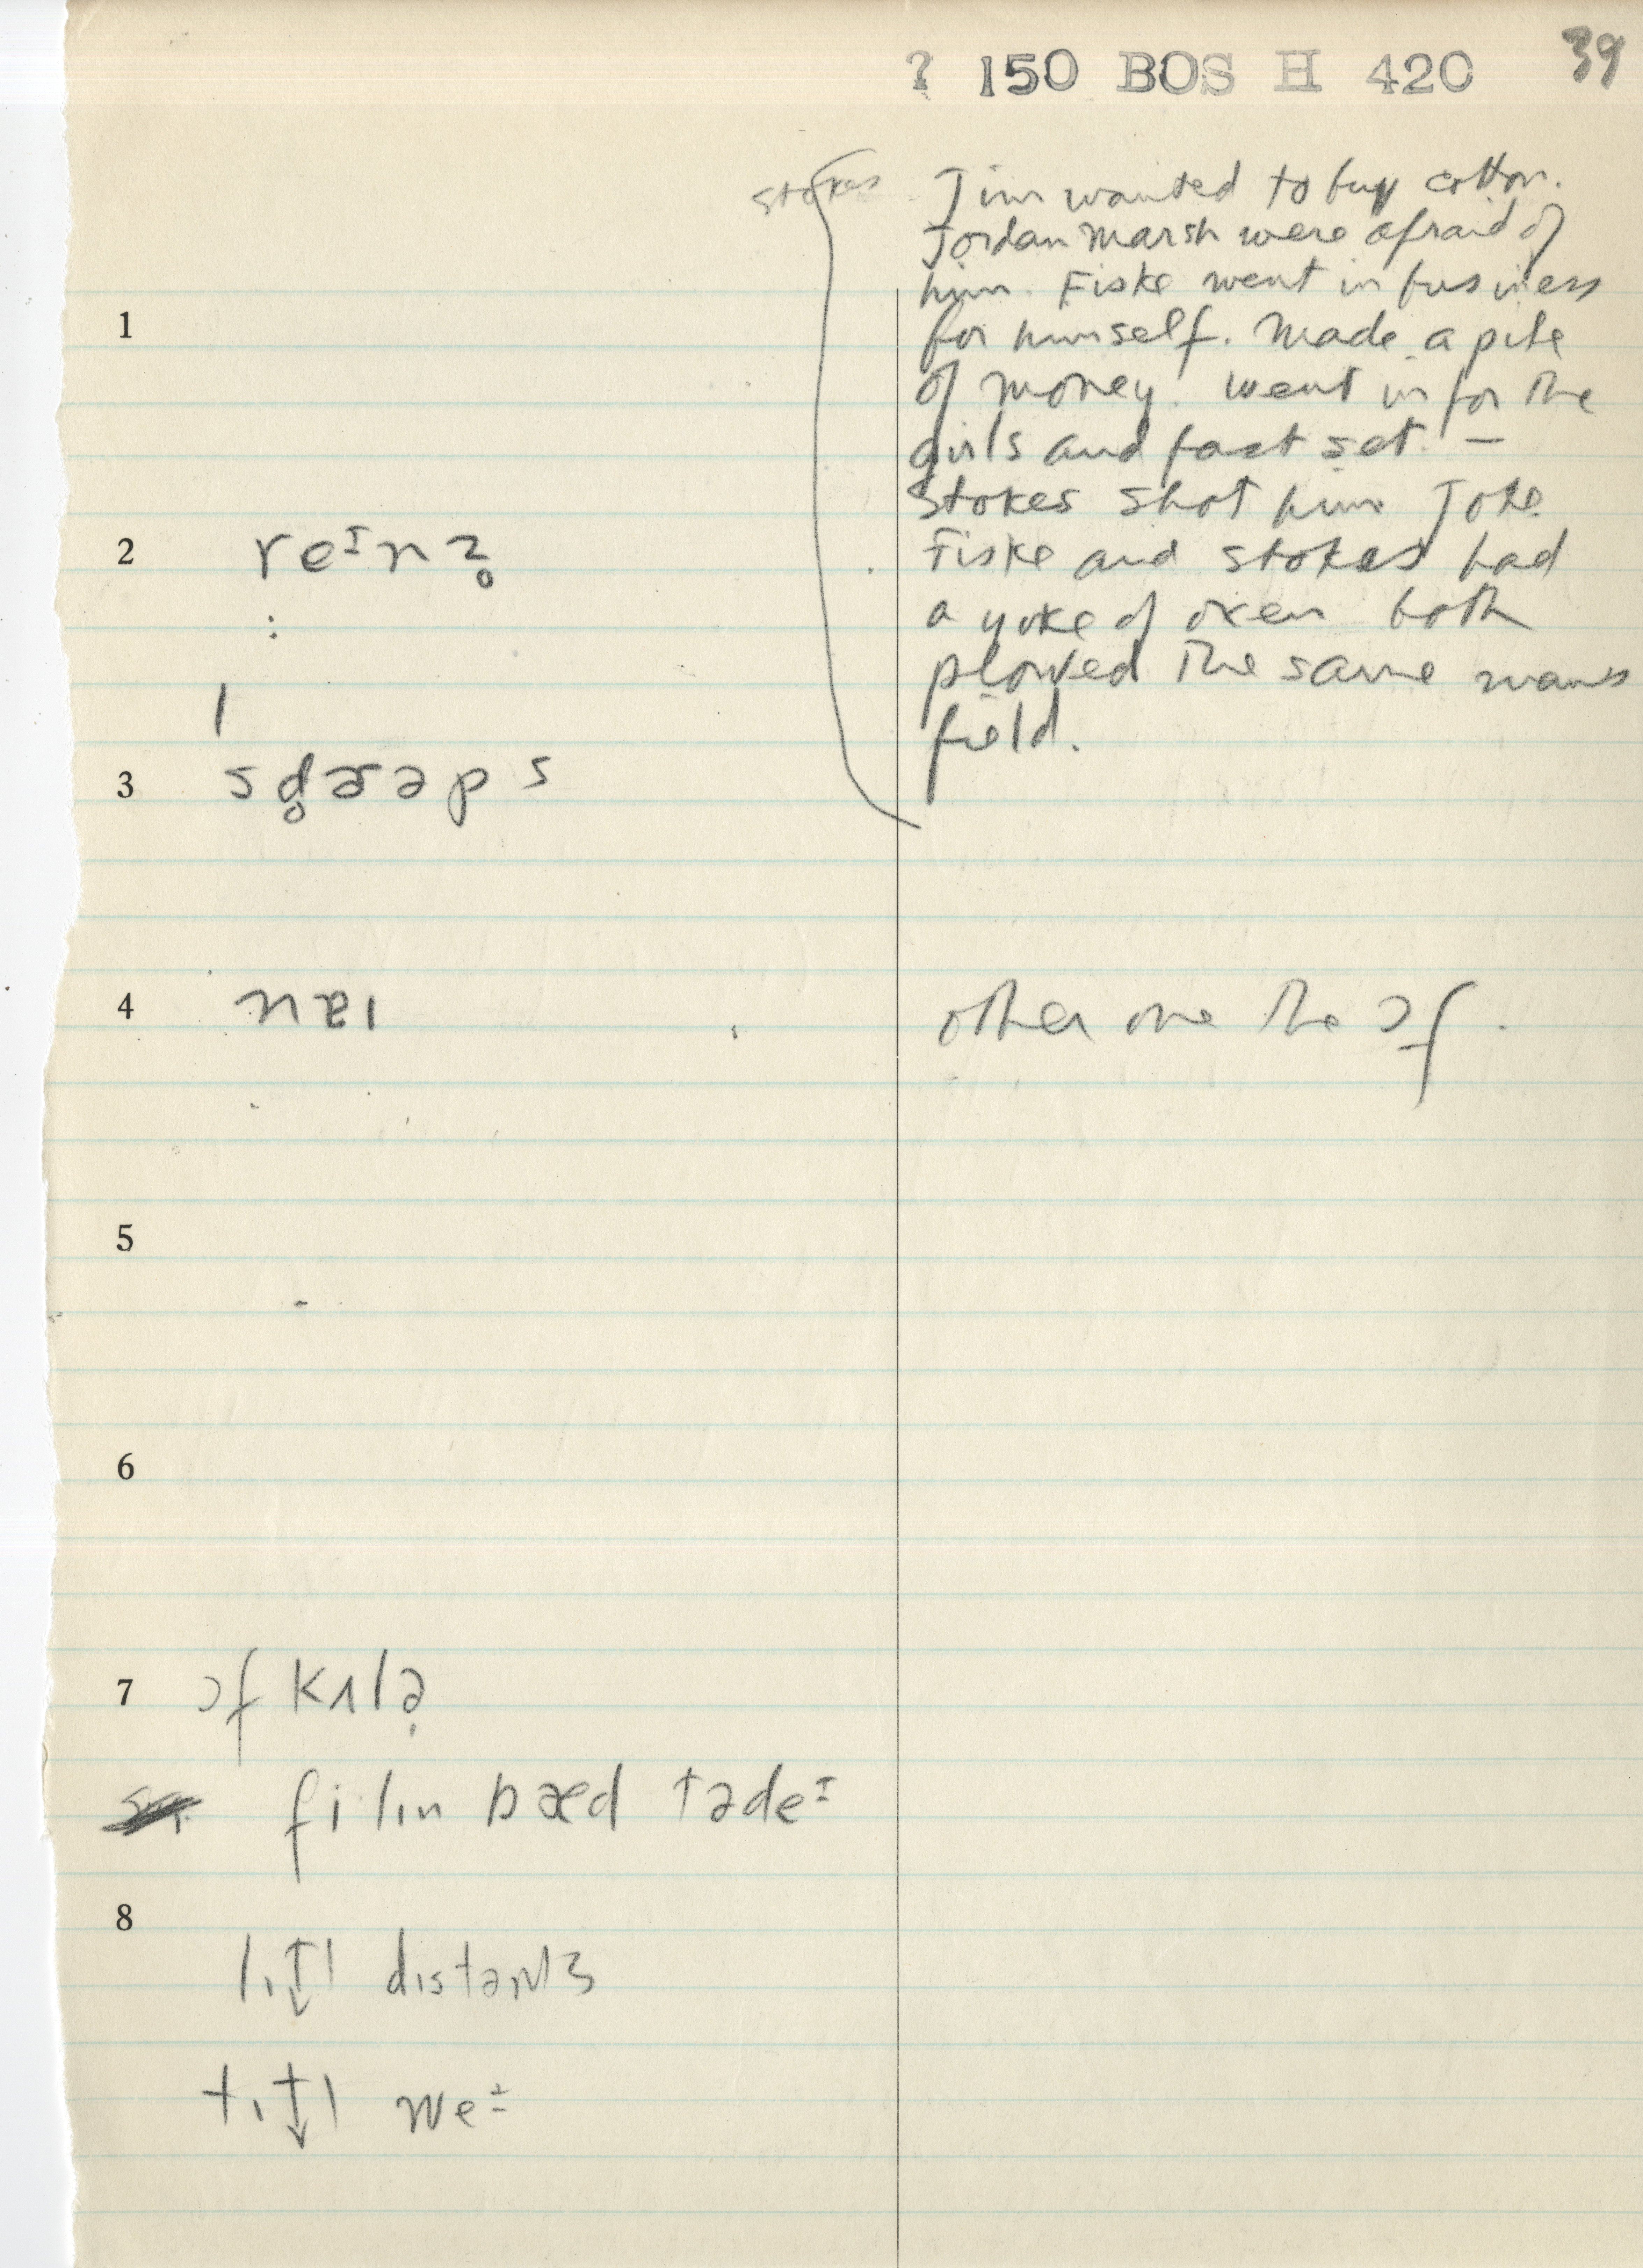 ? 150 BOS H 420 39
stokes
Jim wanted to buy cotton.
Jordan Marsh were afraid of
him. Fiske went in business
for himself. Made a pile
of money. went in for the
girls and fast set. —
Stokes shot him Joke
Fiske and Stokes had
a yoke of oxen both
plowed the same mans
field.
1
2 reɪnz̥
3 sd̥æəps
4 nɐɪ other one the ɔf.
5
6
7 ɔf kʌlə̣
filin bæd tədeɪ
8
distants
weɪ